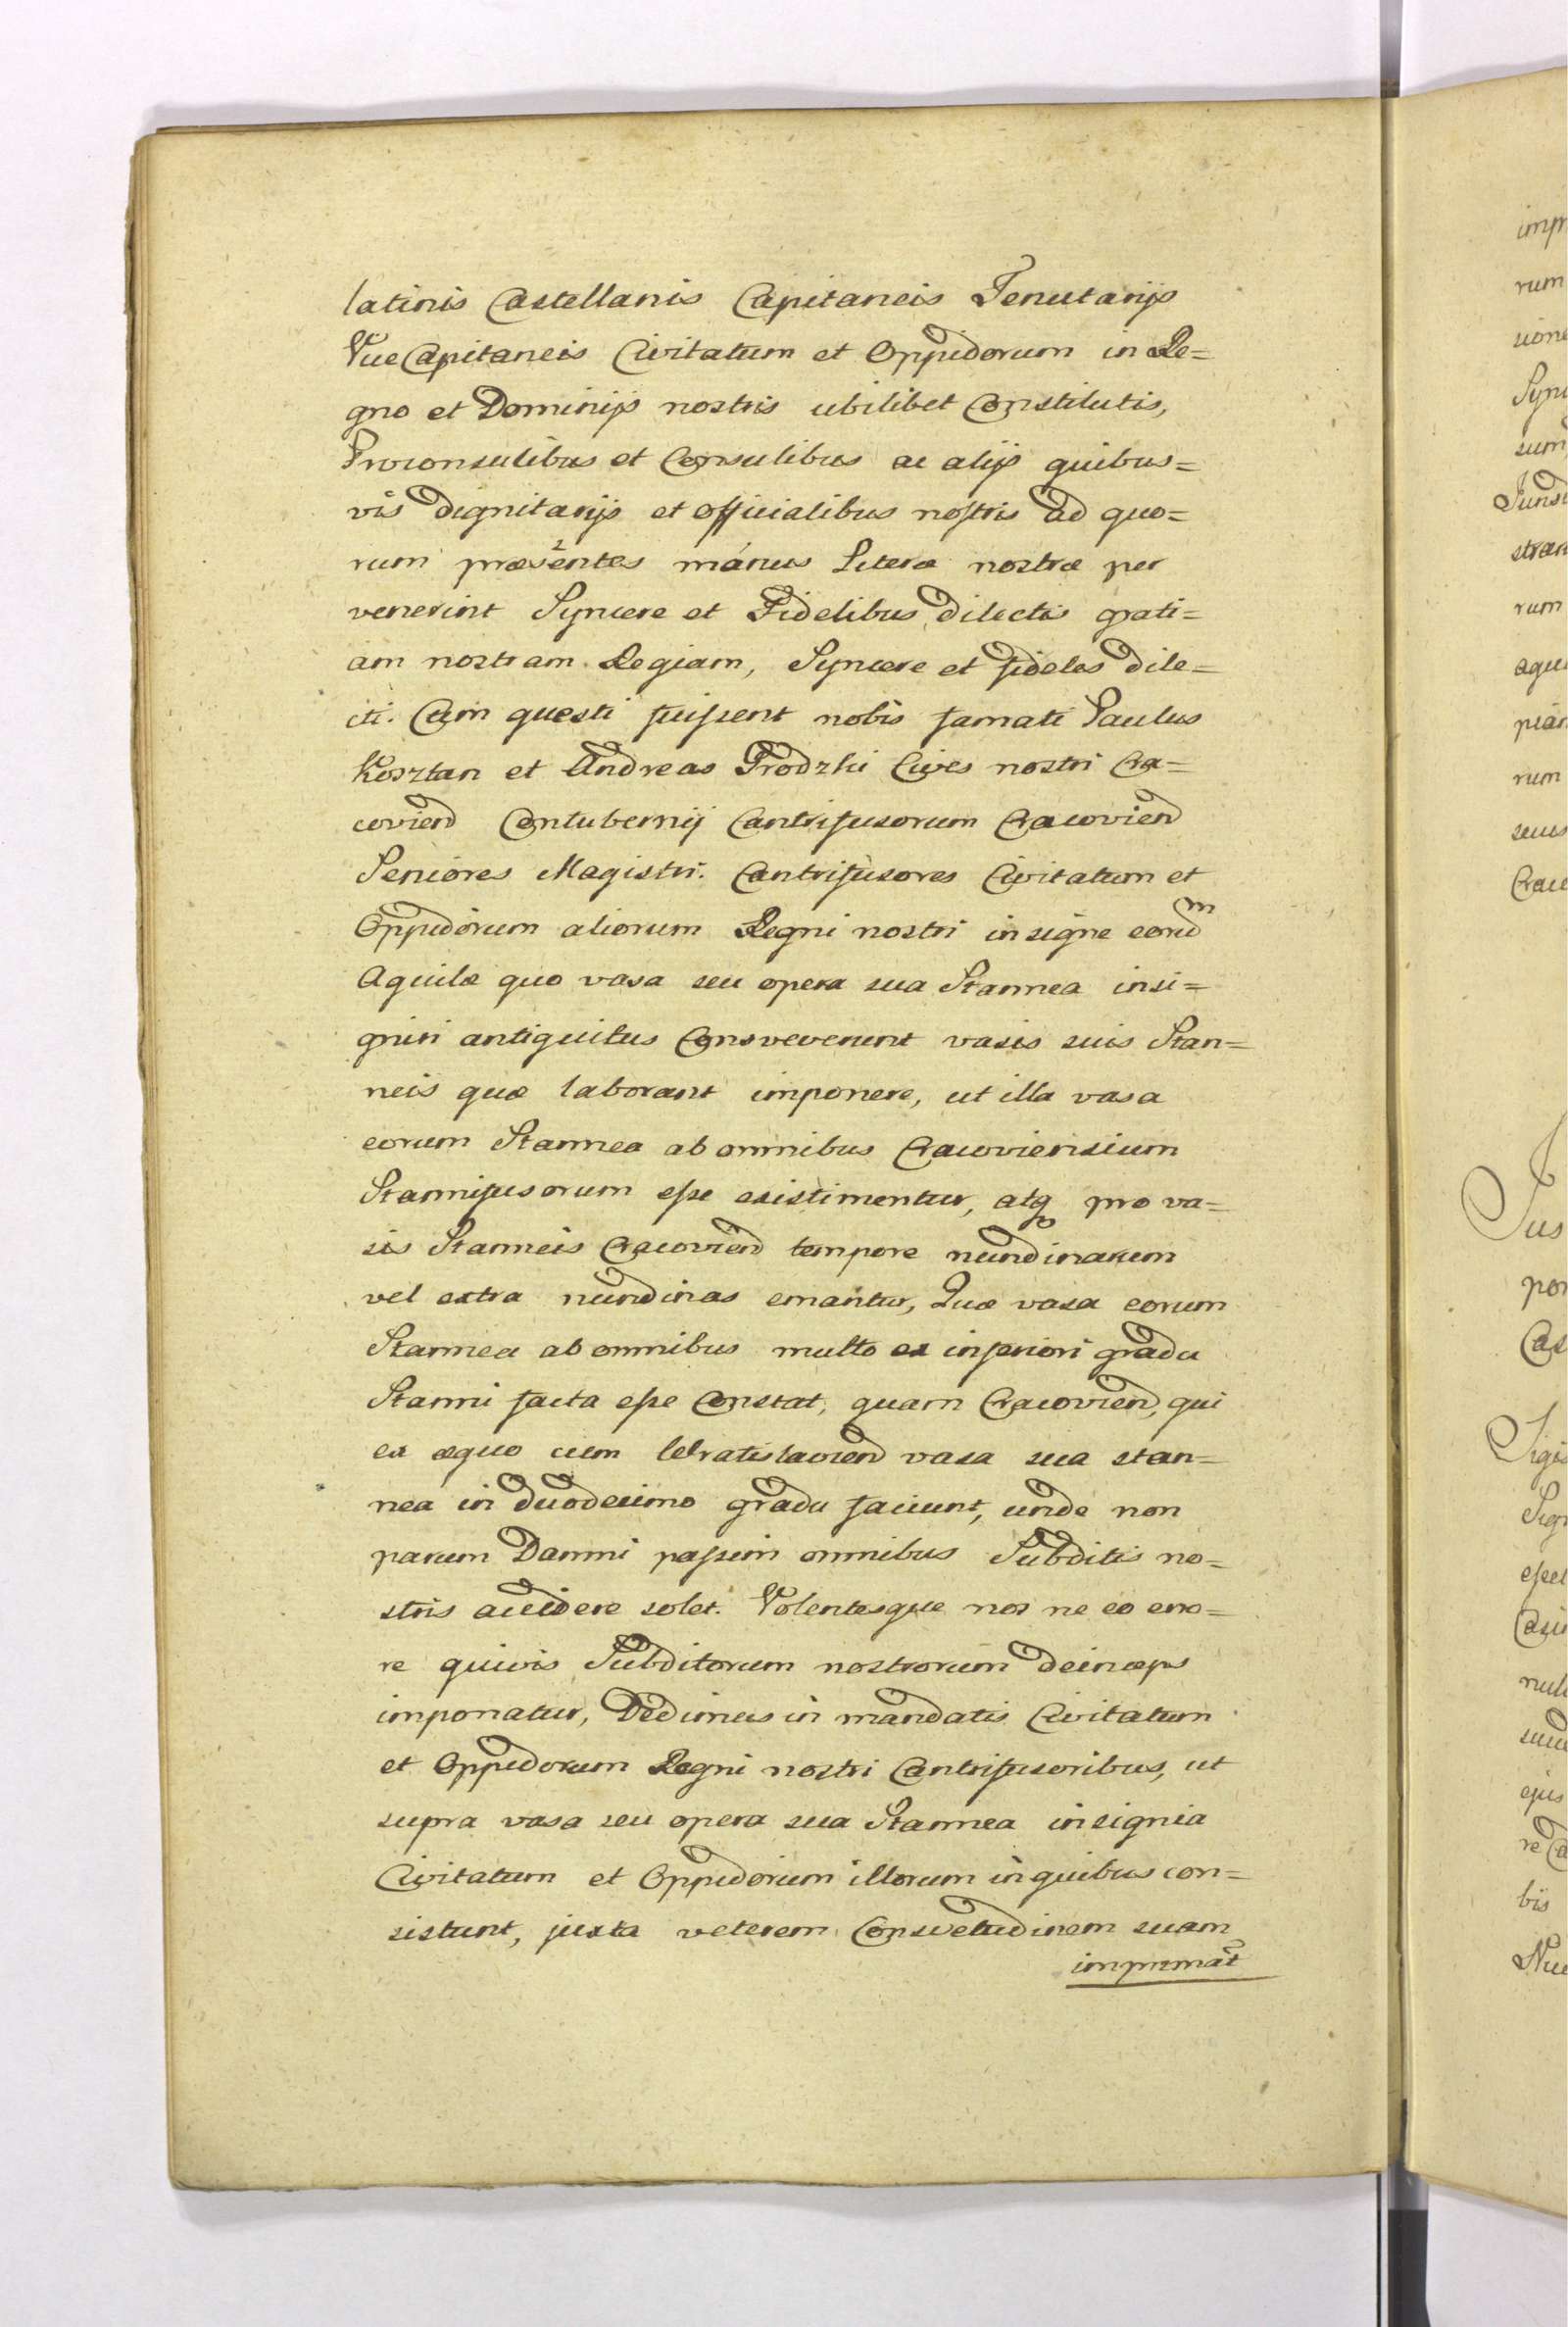 latinis Castellanis Capitaneis Tenutarijs
Vice Capitaneis Civitatum et Oppidorum in Re=
gno et Dominijs nostris ubilibet Constitutis,
Proconsulibus et Consulibus ac alijs quibus=
vis dignitarijs et officialibus nostris ad quo=
rum præsentes manus Literæ nostræ per
venerint Syncere et Fidelibus dilectis grati=
am nostram Regiam, Syncere et fideles dile=
cti. Cum questi fuissent nobis famati Paulus
Kosztan et Andreas Grodzki Cives nostri Cra=
coviens Contubernij Cantrifusorum Cracovien
Seniores Magistri. Cantrifusores Civitatum et
Oppidorum aliorum Regni nostri insigne eorum
Aquilæ quo vasa seu opera sua Stannea insi=
gniri antiquitus Consveverunt vasis suis Stan=
neis quæ laborant imponere, ut illa vasa
eorum Stannea ab omnibus Cracoviensium
Stannifusorum esse existimentur, atq pro va=
sis Stanneis Cracovien tempore nundinarum
vel extra nundinas emantur, Quæ vasa eorum
Stannea ab omnibus multo ex inferiori gradu
Stanni facta esse Constat, quam Cracovien, qui
ex æquo cum Wratislavien vasa sua stan=
nea in duodecimo gradu faciunt, unde non
parum Damni passim omnibus Subditis no=
stris accidere solet. Volentesque nos ne eo erro=
re quivis Subditorum nostrorum deinceps
imponatur, Dedimus in mandatis Civitatum
et Oppidorum Regni nostri Cantrifusoribus, ut
supra vasa seu opera sua Stannea insignia
Civitatum et Oppidorum illorum in quibus con=
sistunt, juxta veterem Consvetudinem suam
imprimat